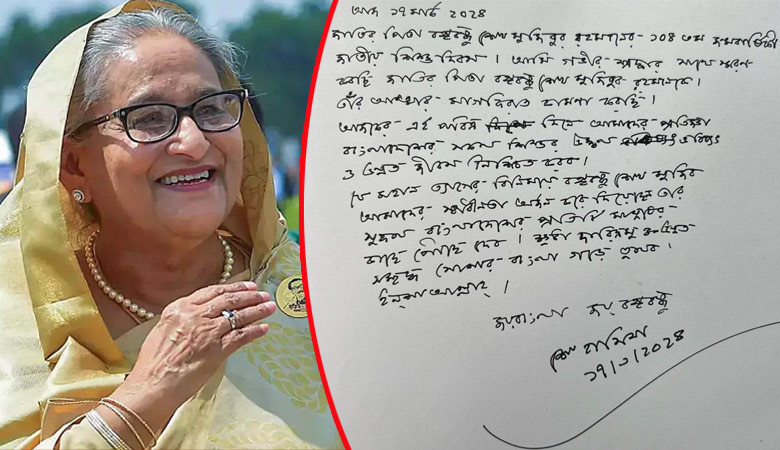 আজ ১৭ মার্চ ২০২৪
জাতির পিতা বঙ্গবন্ধু শেখ মুজিবুর রহমানের ১০৪ তম জন্মবার্ষিকী
জাতীয় শিশু দিবস। আমি গভীর শ্রদ্ধার সাথে স্মরণ
করছি জাতির পিতা বঙ্গবন্ধু শেখ মুজিবুর রহমানকে।
তাঁর আত্মার মাগফিরাত কামনা করছি।
আজকের এই পবিত্র দিনে আমাদের প্রতিজ্ঞা
বাংলাদেশের সকল শিশুর উজ্জ্বল ভবিষ্যৎ
ও উন্নত জীবন নিশ্চিত করব।
যে মহান ত্যাগের বিনিময়ে বঙ্গবন্ধু শেখ মুজিব
আমাদের স্বাধীনতা অর্জন করে দিয়েছেন তার
সুফল বাংলাদেশের প্রতিটি মানুষের
কাছে পৌঁছে দেব। ক্ষুধা দারিদ্র্যমুক্ত উন্নত
সমৃদ্ধ সোনার বাংলা গড়ে তুলব।
ইনশাআল্লাহ।
জয় বাংলা জয় বঙ্গবন্ধু
শেখ হাসিনা
১৭/৩/২০২৪